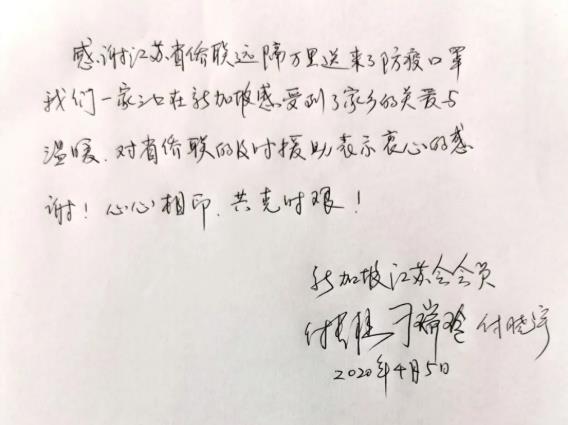 感谢江苏省侨联远隔万里送来了防疫口罩
我们一家三口在新加坡感受到了家乡的关爱与
温暖.对省侨联的及时援助表示衷心的感
谢！心心相印.共克时艰！
新加坡江苏会会员
刁瑞玲 付晓宇
2020年4月5日